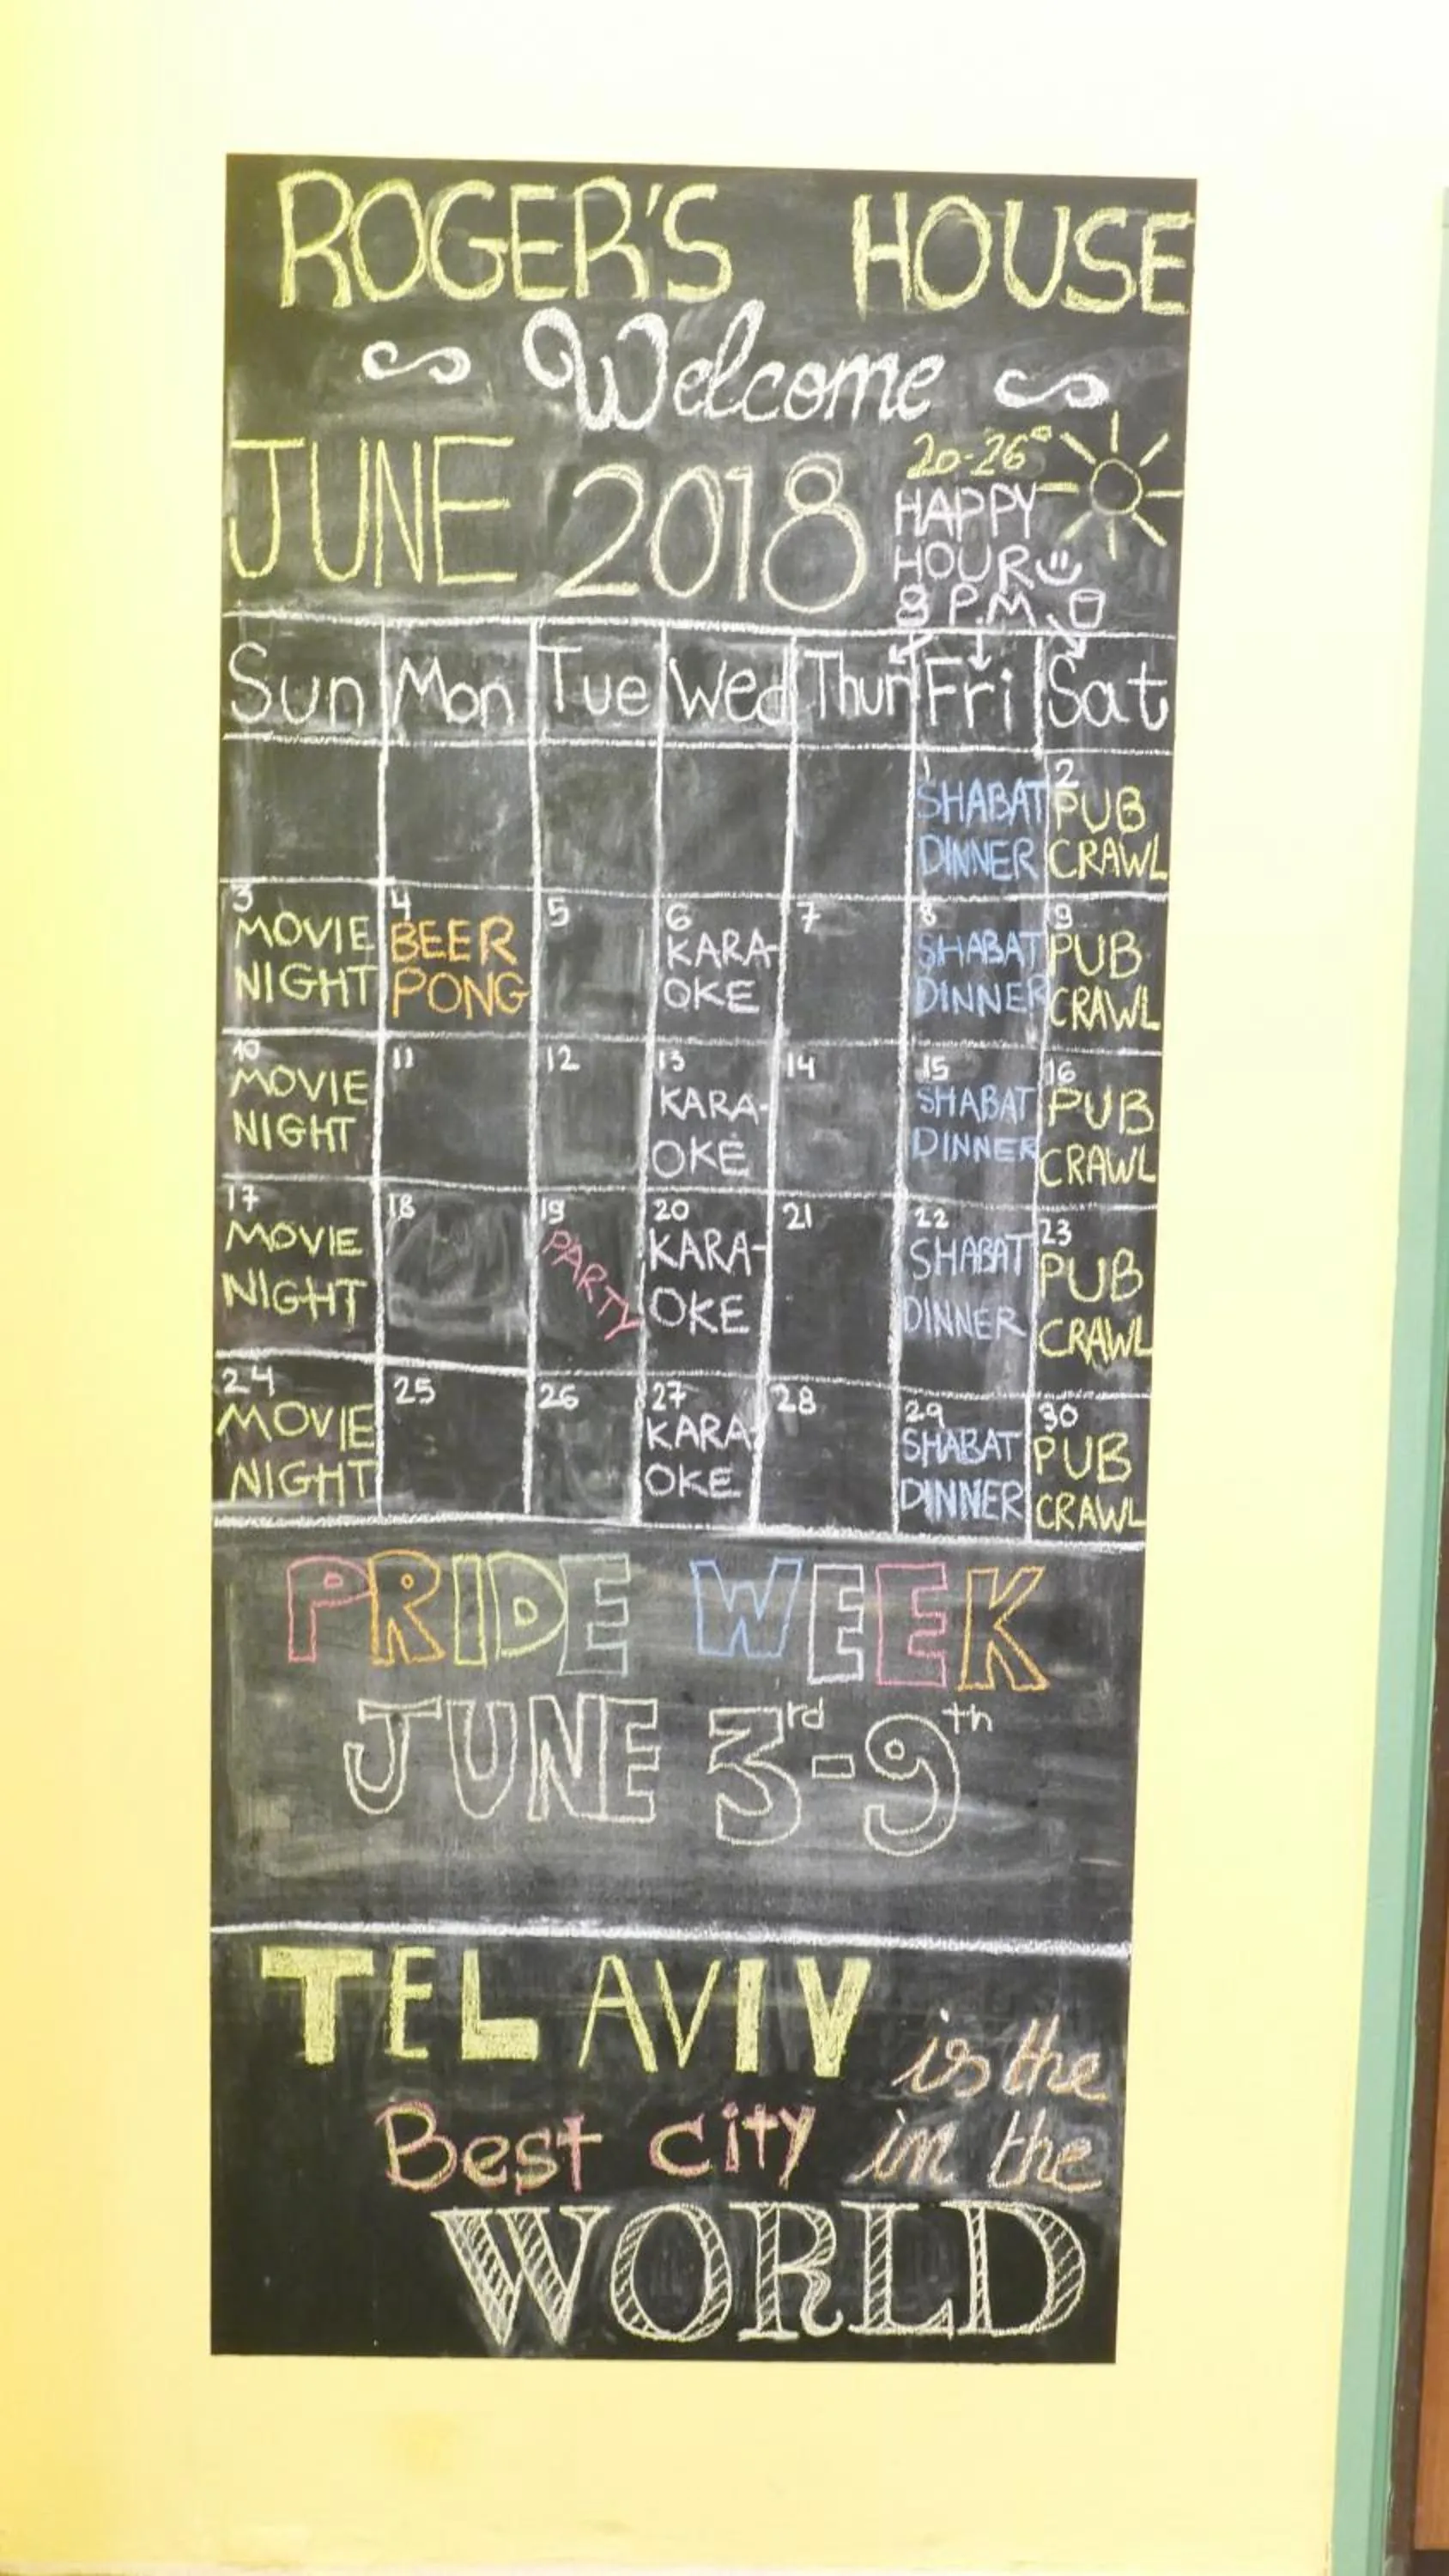 ROGER'S HOUSE
Welcome
JUNE 2018
20-26°
HAPPY
HOUR
8 P.M.
Sun Mon Tue Wed Thur Fri Sat
1 2
SHABAT PUB
DINNER CRAWL
3 4 5 6 7 8 9
MOVIE BEER KARA- SHABAT PUB
NIGHT PONG OKE DINNER CRAWL
10 11 12 13 14 15 16
MOVIE KARA- SHABAT PUB
NIGHT OKE DINNER CRAWL
17 18 19 20 21 22 23
MOVIE PARTY KARA- SHABAT PUB
NIGHT OKE DINNER CRAWL
24 25 26 27 28 29 30
MOVIE KARA- SHABAT PUB
NIGHT OKE DINNER CRAWL
PRIDE WEEK
JUNE 3rd-9th
TEL AVIV is the
Best city in the
WORLD